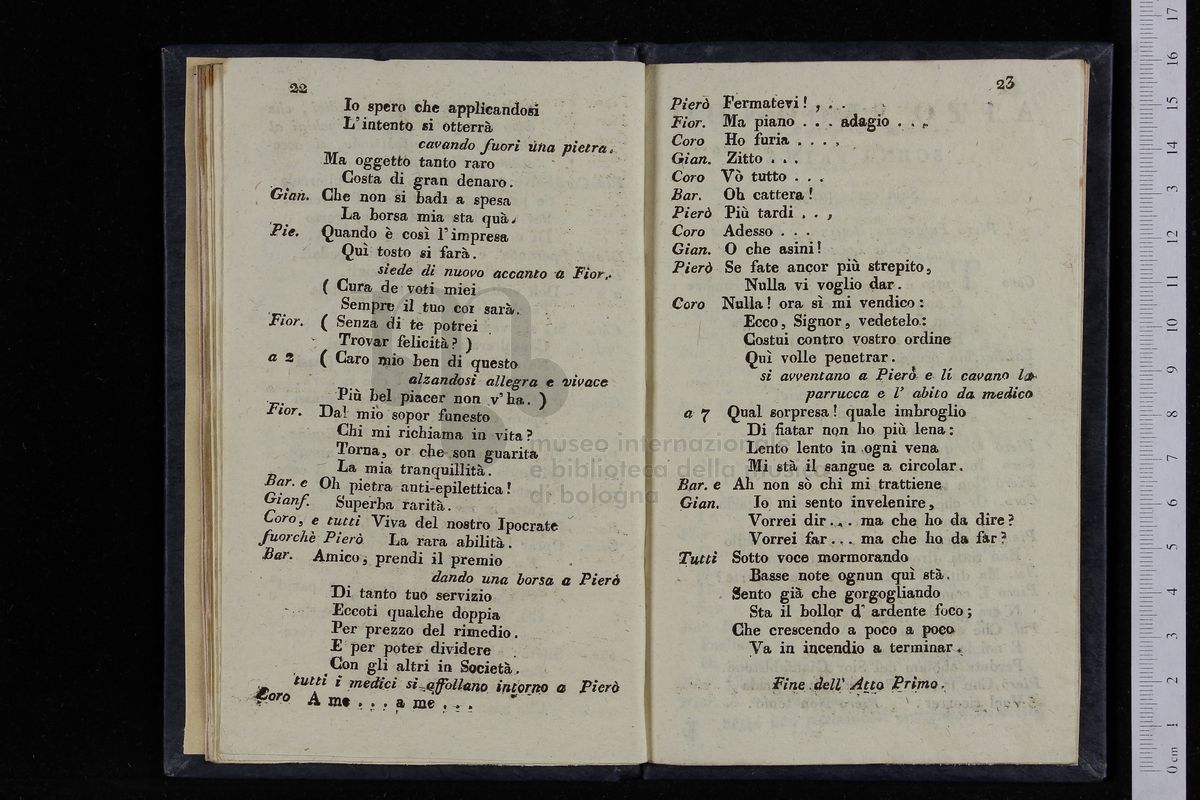 22
Io spero che applicandosi
L'intento si otterrà
cavando fuori una pietra.
Ma oggetto tanto raro
Costa di gran denaro.
Gian. Che non si badi a spesa
La borsa mia sta quà.
Pie. Quando è così l'impresa
Quì tosto si farà.
siede di nuovo accanto a Fior.
( Cura de voti miei
Sempre il tuo cor sarà.
Fior. ( Senza di te potrei
Trovar felicità? )
a 2 ( Caro mio ben di questo
alzandosi allegra e vivace
Più bel piacer non v'ha. )
Fior. Dal mio sopor funesto
Chi mi richiama in vita?
Torna, or che son guarita
La mia tranquillità.
Bar. e Oh pietra anti-epilettica!
Gianf. Superba rarità.
Coro, e tutti Viva del nostro Ipocrate
fuorchè Pierò La rara abilità.
Bar. Amico, prendi il premio
dando una borsa a Pierò
Di tanto tuo servizio
Eccoti qualche doppia
Per prezzo del rimedio.
E per poter dividere
Con gli altri in Società.
tutti i medici si affollano intorno a Pierò
Coro A me . . . a me . . .
23
Pierò Fermatevi! , . .
Fior. Ma piano . . . adagio . . .
Coro Ho furia . . . .
Gian. Zitto . . .
Coro Vò tutto . . .
Bar. Oh cattera!
Pierò Più tardi . . ,
Coro Adesso . . .
Gian. O che asini!
Pierò Se fate ancor più strepito,
Nulla vi voglio dar.
Coro Nulla! ora sì mi vendico:
Ecco, Signor, vedetelo:
Costui contro vostro ordine
Quì volle penetrar.
si avventano a Pierò e li cavano la
parrucca e l' abito da medico
a 7 Qual sorpresa! quale imbroglio
Di fiatar non ho più lena:
Lento lento in ogni vena
Mi stà il sangue a circolar.
Bar. e Ah non sò chi mi trattiene
Gian. Io mi sento invelenire,
Vorrei dir... ma che ho da dire?
Vorrei far... ma che ho da far?
Tutti Sotto voce mormorando
Basse note ognun quì stà.
Sento già che gorgogliando
Sta il bollor d' ardente foco;
Che crescendo a poco a poco
Va in incendio a terminar.
Fine dell' Atto Primo.
museo internazionale
e biblioteca della musica
di bologna
0 cm 1 2 3 4 5 6 7 8 9 10 11 12 13 14 15 16 17